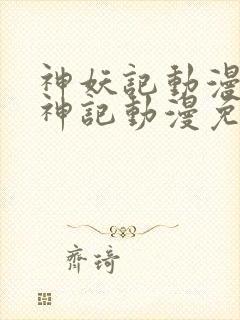 神妖記動漫
神記動漫免
齊琦